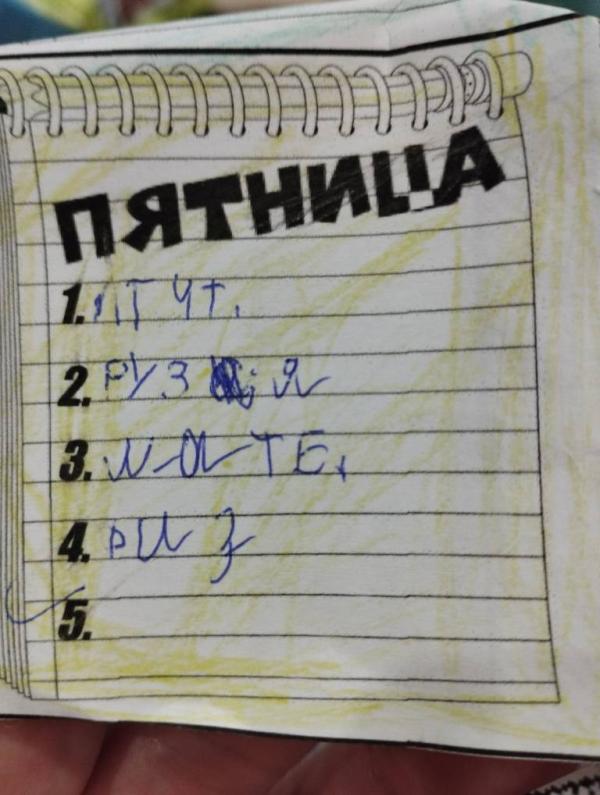 ПЯТНИЦА
1. ЛТ ЧТ.
2. РУЗ Я
3. МАТЕ.
4. РИЗ
5.